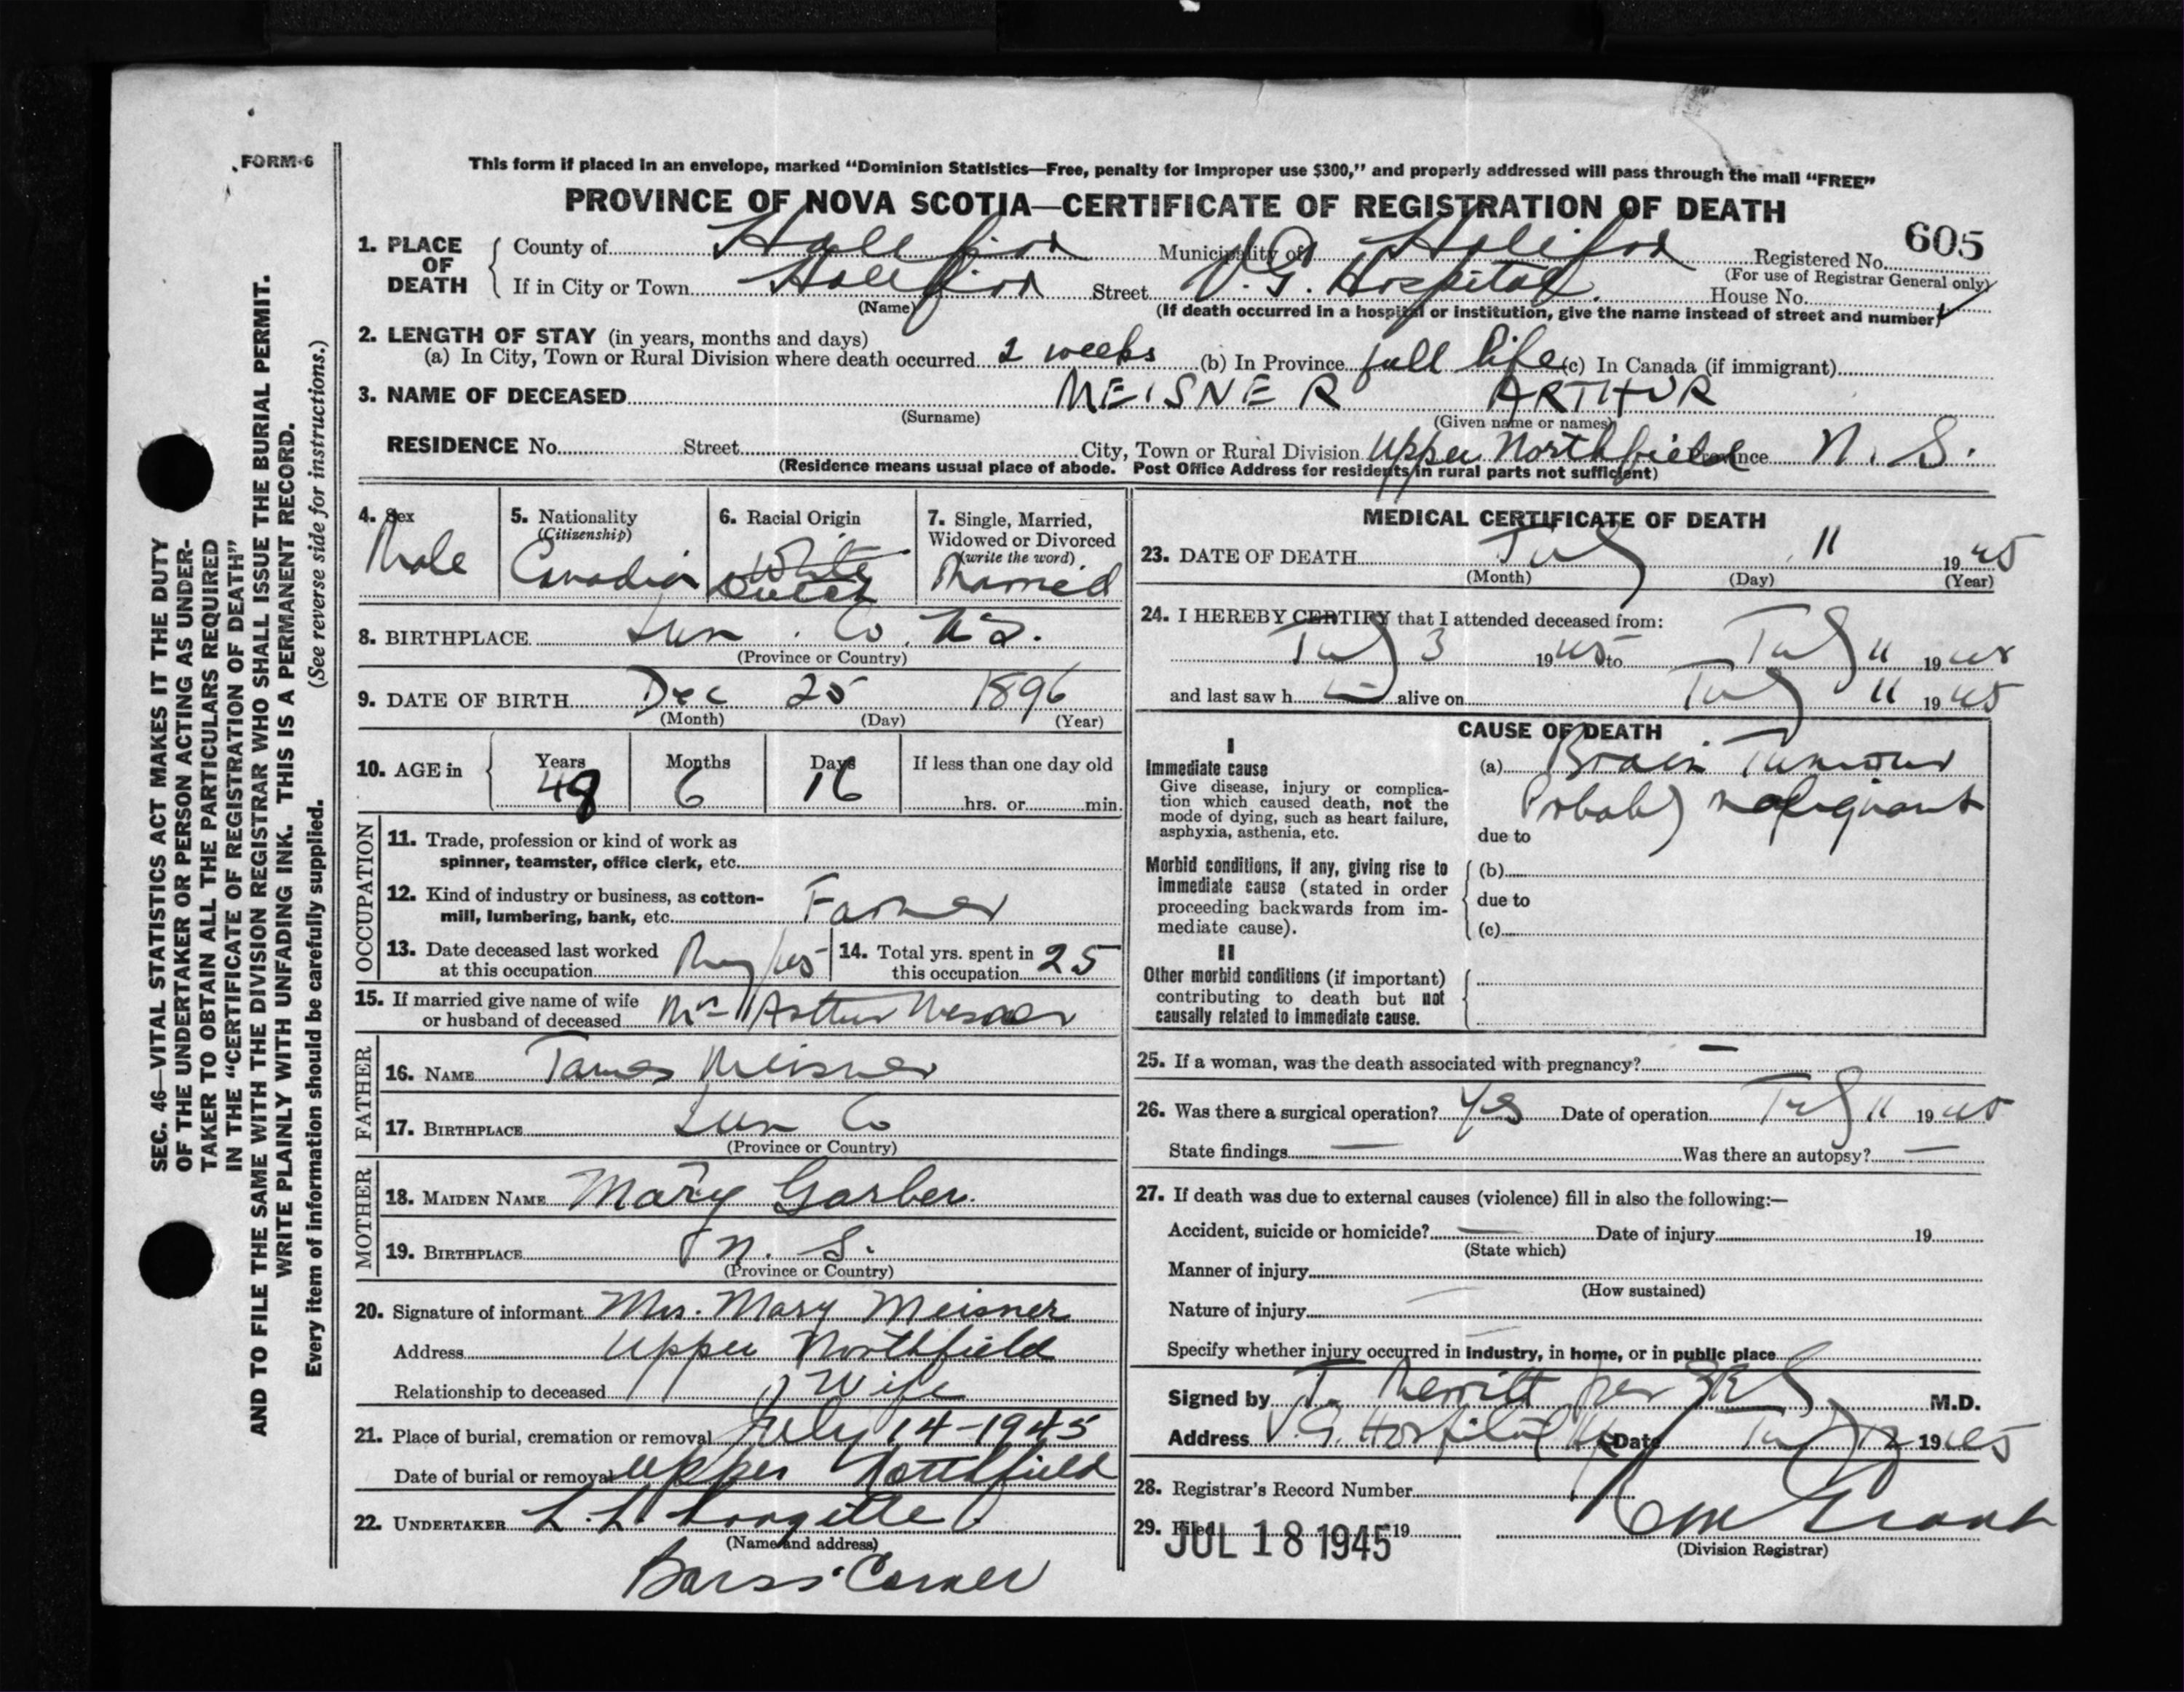 FORM 6
This form if placed in an envelope, marked “Dominion Statistics—Free, penalty for improper use $300,” and properly addressed will pass through the mail “FREE”
PROVINCE OF NOVA SCOTIA—CERTIFICATE OF REGISTRATION OF DEATH
605
1. PLACE OF DEATH County of Halifax Municipality of Halifax Registered No.
(For use of Registrar General only)
If in City or Town Halifax Street V.G. Hospital. House No.
(Name) (If death occurred in a hospital or institution, give the name instead of street and number)
2. LENGTH OF STAY (in years, months and days)
(a) In City, Town or Rural Division where death occurred 2 weeks (b) In Province full life (c) In Canada (if immigrant)
3. NAME OF DECEASED MEISNER ARTHUR
(Surname) (Given name or names)
RESIDENCE No. Street City, Town or Rural Division Upper Northfield Province N. S.
(Residence means usual place of abode. Post Office Address for residents in rural parts not sufficient)
4. Sex 5. Nationality 6. Racial Origin 7. Single, Married,
(Citizenship) Widowed or Divorced
(write the word)
Male Canadian White Dutch Married
8. BIRTHPLACE Lun. Co. N.S.
(Province or Country)
9. DATE OF BIRTH Dec 25 1896
(Month) (Day) (Year)
10. AGE in Years Months Days If less than one day old
48 6 16 hrs. or min.
OCCUPATION
11. Trade, profession or kind of work as
spinner, teamster, office clerk, etc.
12. Kind of industry or business, as cotton-
mill, lumbering, bank, etc. Farmer
13. Date deceased last worked
at this occupation May/45
14. Total yrs. spent in
this occupation 25
15. If married give name of wife
or husband of deceased Mrs Arthur Meisner
FATHER
16. NAME James Meisner
17. BIRTHPLACE Lun Co
(Province or Country)
MOTHER
18. MAIDEN NAME Mary Garber.
19. BIRTHPLACE N. S.
(Province or Country)
20. Signature of informant Mrs. Mary Meisner
Address Upper Northfield
Relationship to deceased Wife
21. Place of burial, cremation or removal July 14-1945
Date of burial or removal Upper Northfield
22. UNDERTAKER
(Name and address)
Barss Corner
MEDICAL CERTIFICATE OF DEATH
23. DATE OF DEATH July 11 1945
(Month) (Day) (Year)
24. I HEREBY CERTIFY that I attended deceased from:
July 3 1945 to July 11 1945
and last saw h alive on July 11 1945
CAUSE OF DEATH
I
Immediate cause
Give disease, injury or complica-
tion which caused death, not the
mode of dying, such as heart failure,
asphyxia, asthenia, etc.
(a) Brain Tumour
Probably malignant
due to
Morbid conditions, if any, giving rise to
immediate cause (stated in order
proceeding backwards from im-
mediate cause).
(b)
due to
(c)
II
Other morbid conditions (if important)
contributing to death but not
causally related to immediate cause.
25. If a woman, was the death associated with pregnancy? —
26. Was there a surgical operation? Yes Date of operation July 11 1945
State findings — Was there an autopsy? —
27. If death was due to external causes (violence) fill in also the following:—
Accident, suicide or homicide? — Date of injury 19
(State which)
Manner of injury
(How sustained)
Nature of injury
Specify whether injury occurred in industry, in home, or in public place
Signed by J. Merritt per M.D.
Address V.G. Hospital Date July 12 1945
28. Registrar's Record Number
29. Filed JUL 18 1945 19
(Division Registrar)
SEC. 46—VITAL STATISTICS ACT MAKES IT THE DUTY
OF THE UNDERTAKER OR PERSON ACTING AS UNDER-
TAKER TO OBTAIN ALL THE PARTICULARS REQUIRED
IN THE “CERTIFICATE OF REGISTRATION OF DEATH”
AND TO FILE THE SAME WITH THE DIVISION REGISTRAR WHO SHALL ISSUE THE BURIAL PERMIT.
WRITE PLAINLY WITH UNFADING INK. THIS IS A PERMANENT RECORD.
Every item of information should be carefully supplied. (See reverse side for instructions.)